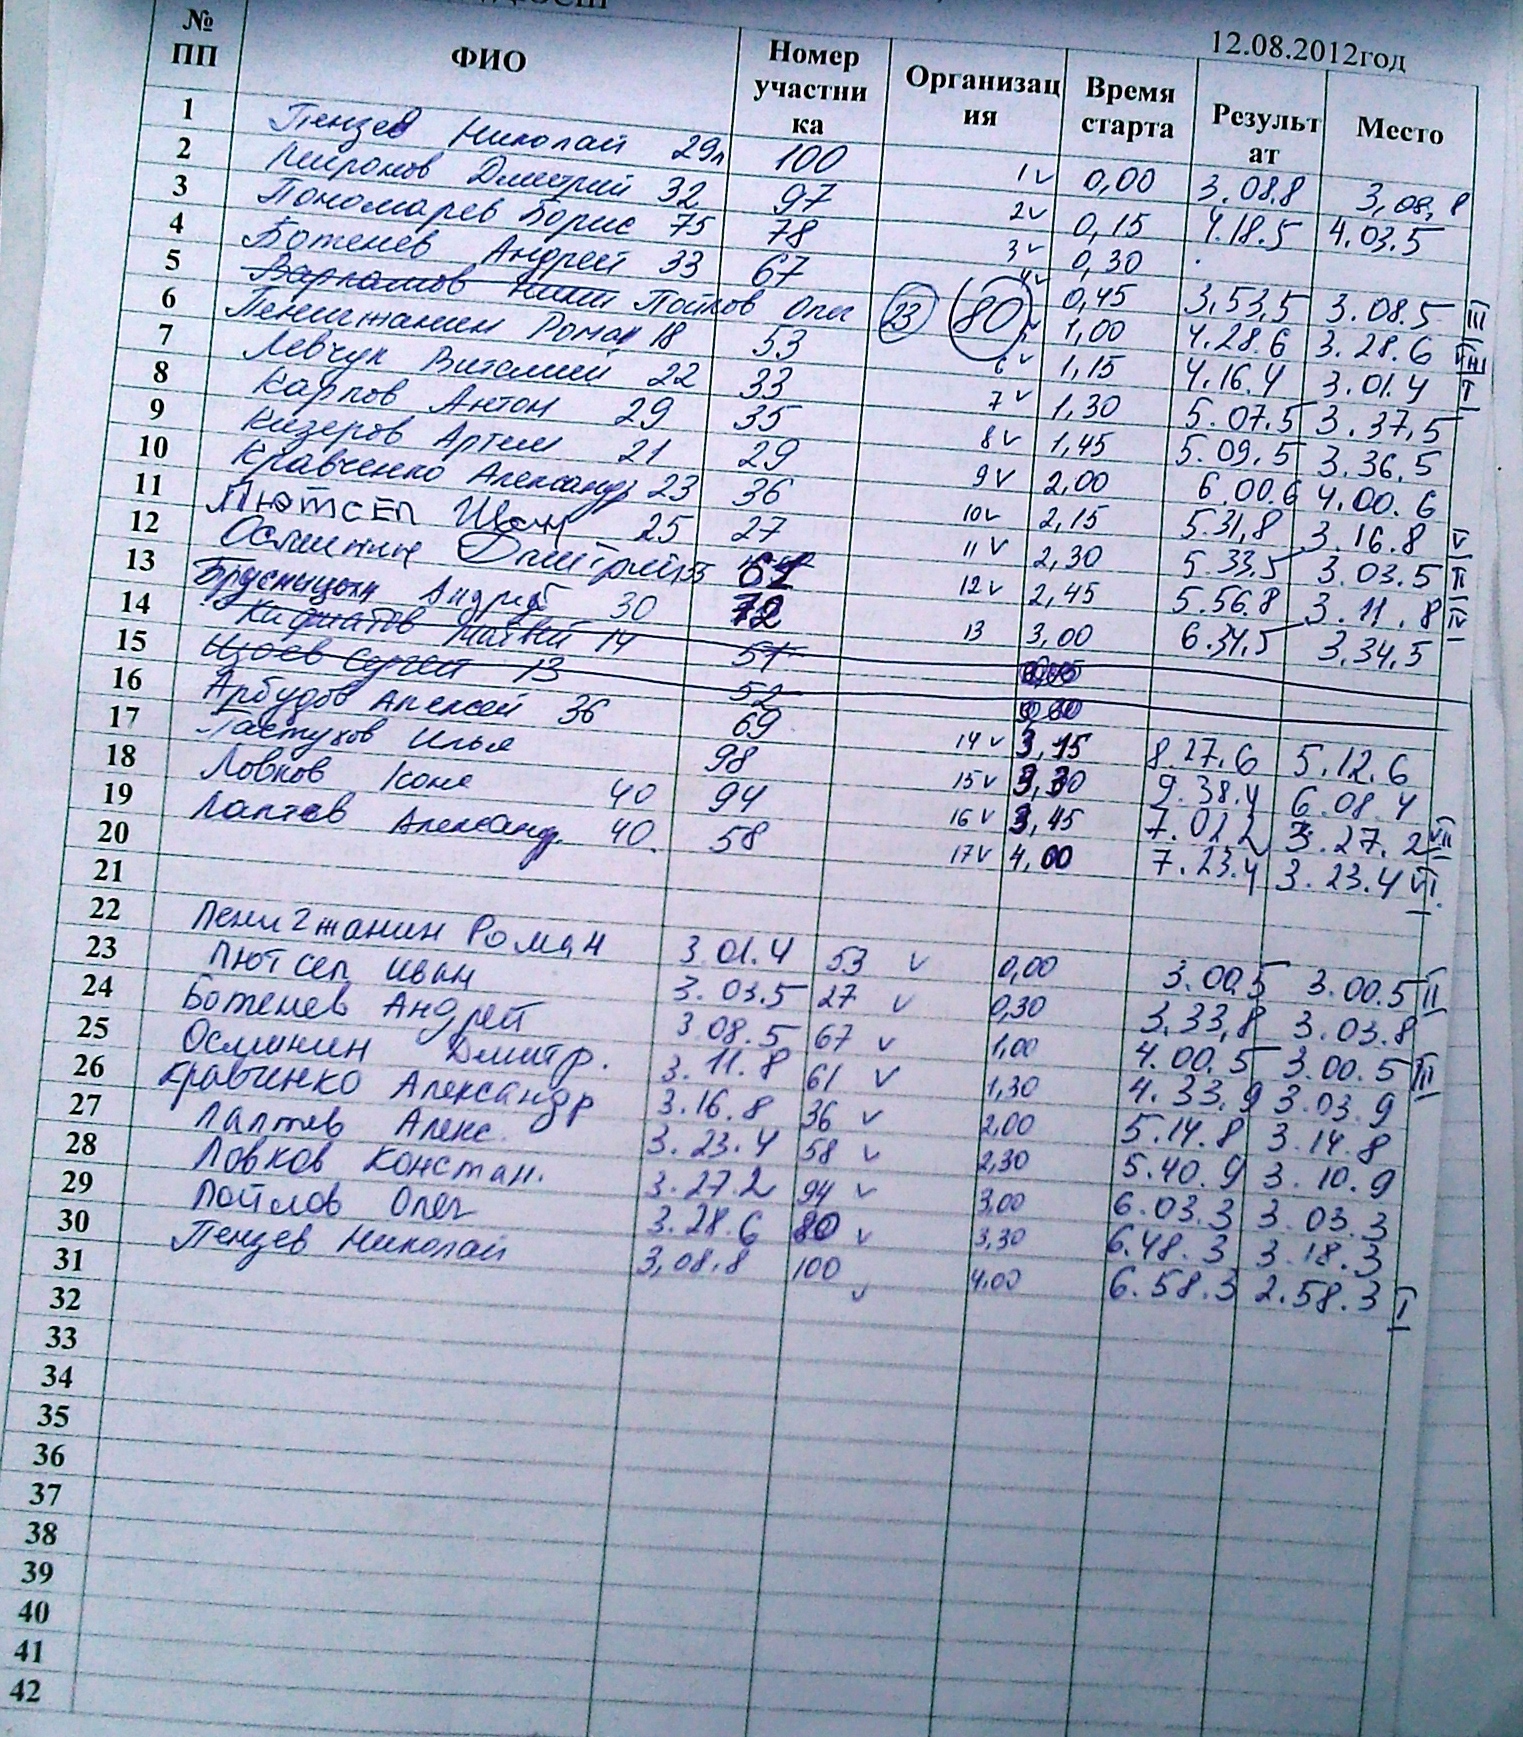 12.08.2012год
№ ПП ФИО Номер участни ка Организац ия Время старта Результ ат Место
1 Пензев Николай 29л 100 1 v 0,00 3.08.8 3,08,8
2 Миронов Дмитрий 32 97 2 v 0,15 4.18.5 4.03.5
3 Пономарев Борис 75 78 3 v 0,30
4 Ботенев Андрей 33 67 4 v 0,45 3,53,5 3.08.5 III
5 Варламов Никит Пойлов Олег 23 80 5 v 1,00 4.28.6 3.28.6
6 Пенигжанин Роман 18 53 6 v 1,15 4.16.4 3.01.4 I
7 Левчук Виталий 22 33 7 v 1,30 5.07.5 3.37,5
8 Карпов Антон 29 35 8 v 1,45 5.09.5 3.36,5
9 Кизеров Артем 21 29 9 v 2,00 6.00.6 4.00.6
10 Кравченко Александр 23 36 10 v 2,15 5.31,8 3.16.8 V
11 Лютсеп Иван 25 27 11 v 2,30 5.33,5 3.03.5 II
12 Осминин Дмитрий 35 61 12 v 2,45 5.56.8 3.11.8 IV
13 Брусницын Андрей 30 72 13 3,00 6.34,5 3.34,5
14 Матвей 14 51
15 Сергей 13 52
16 Арбудов Алексей 36 69 14 v 3,15 8.27.6 5.12.6
17 Пастухов Илья 98 15 v 3,30 9.38.4 6.08.4
18 Ловков Костя 40 94 16 v 3,45 7.012.2 3.27.2 VII
19 Лаптев Александ. 40. 58 17 v 4,00 7.23.4 3.23.4 VI.
20
21
22 Пенигжанин Роман 3.01.4 53 v 0,00 3.00,5 3.00.5 II
23 Лютсеп Иван 3.03.5 27 v 0,30 3,33,8 3.03.8
24 Ботенев Андрей 3.08.5 67 v 1,00 4.00.5 3.00.5 III
25 Осминин Дмитр. 3.11.8 61 v 1,30 4.33.9 3.03.9
26 Кравченко Александр 3.16.8 36 v 2,00 5.14.8 3.14.8
27 Лаптев Алекс. 3.23.4 58 v 2,30 5.40.9 3.10.9
28 Ловков Констан. 3.27.2 94 v 3,00 6.03.3 3.03.3
29 Пойлов Олег 3.28.6 80 v 3,30 6.48.3 3.18.3
30 Пензев Николай 3,08.8 100 v 4.00 6.58.3 2.58.3 I
31
32
33
34
35
36
37
38
39
40
41
42